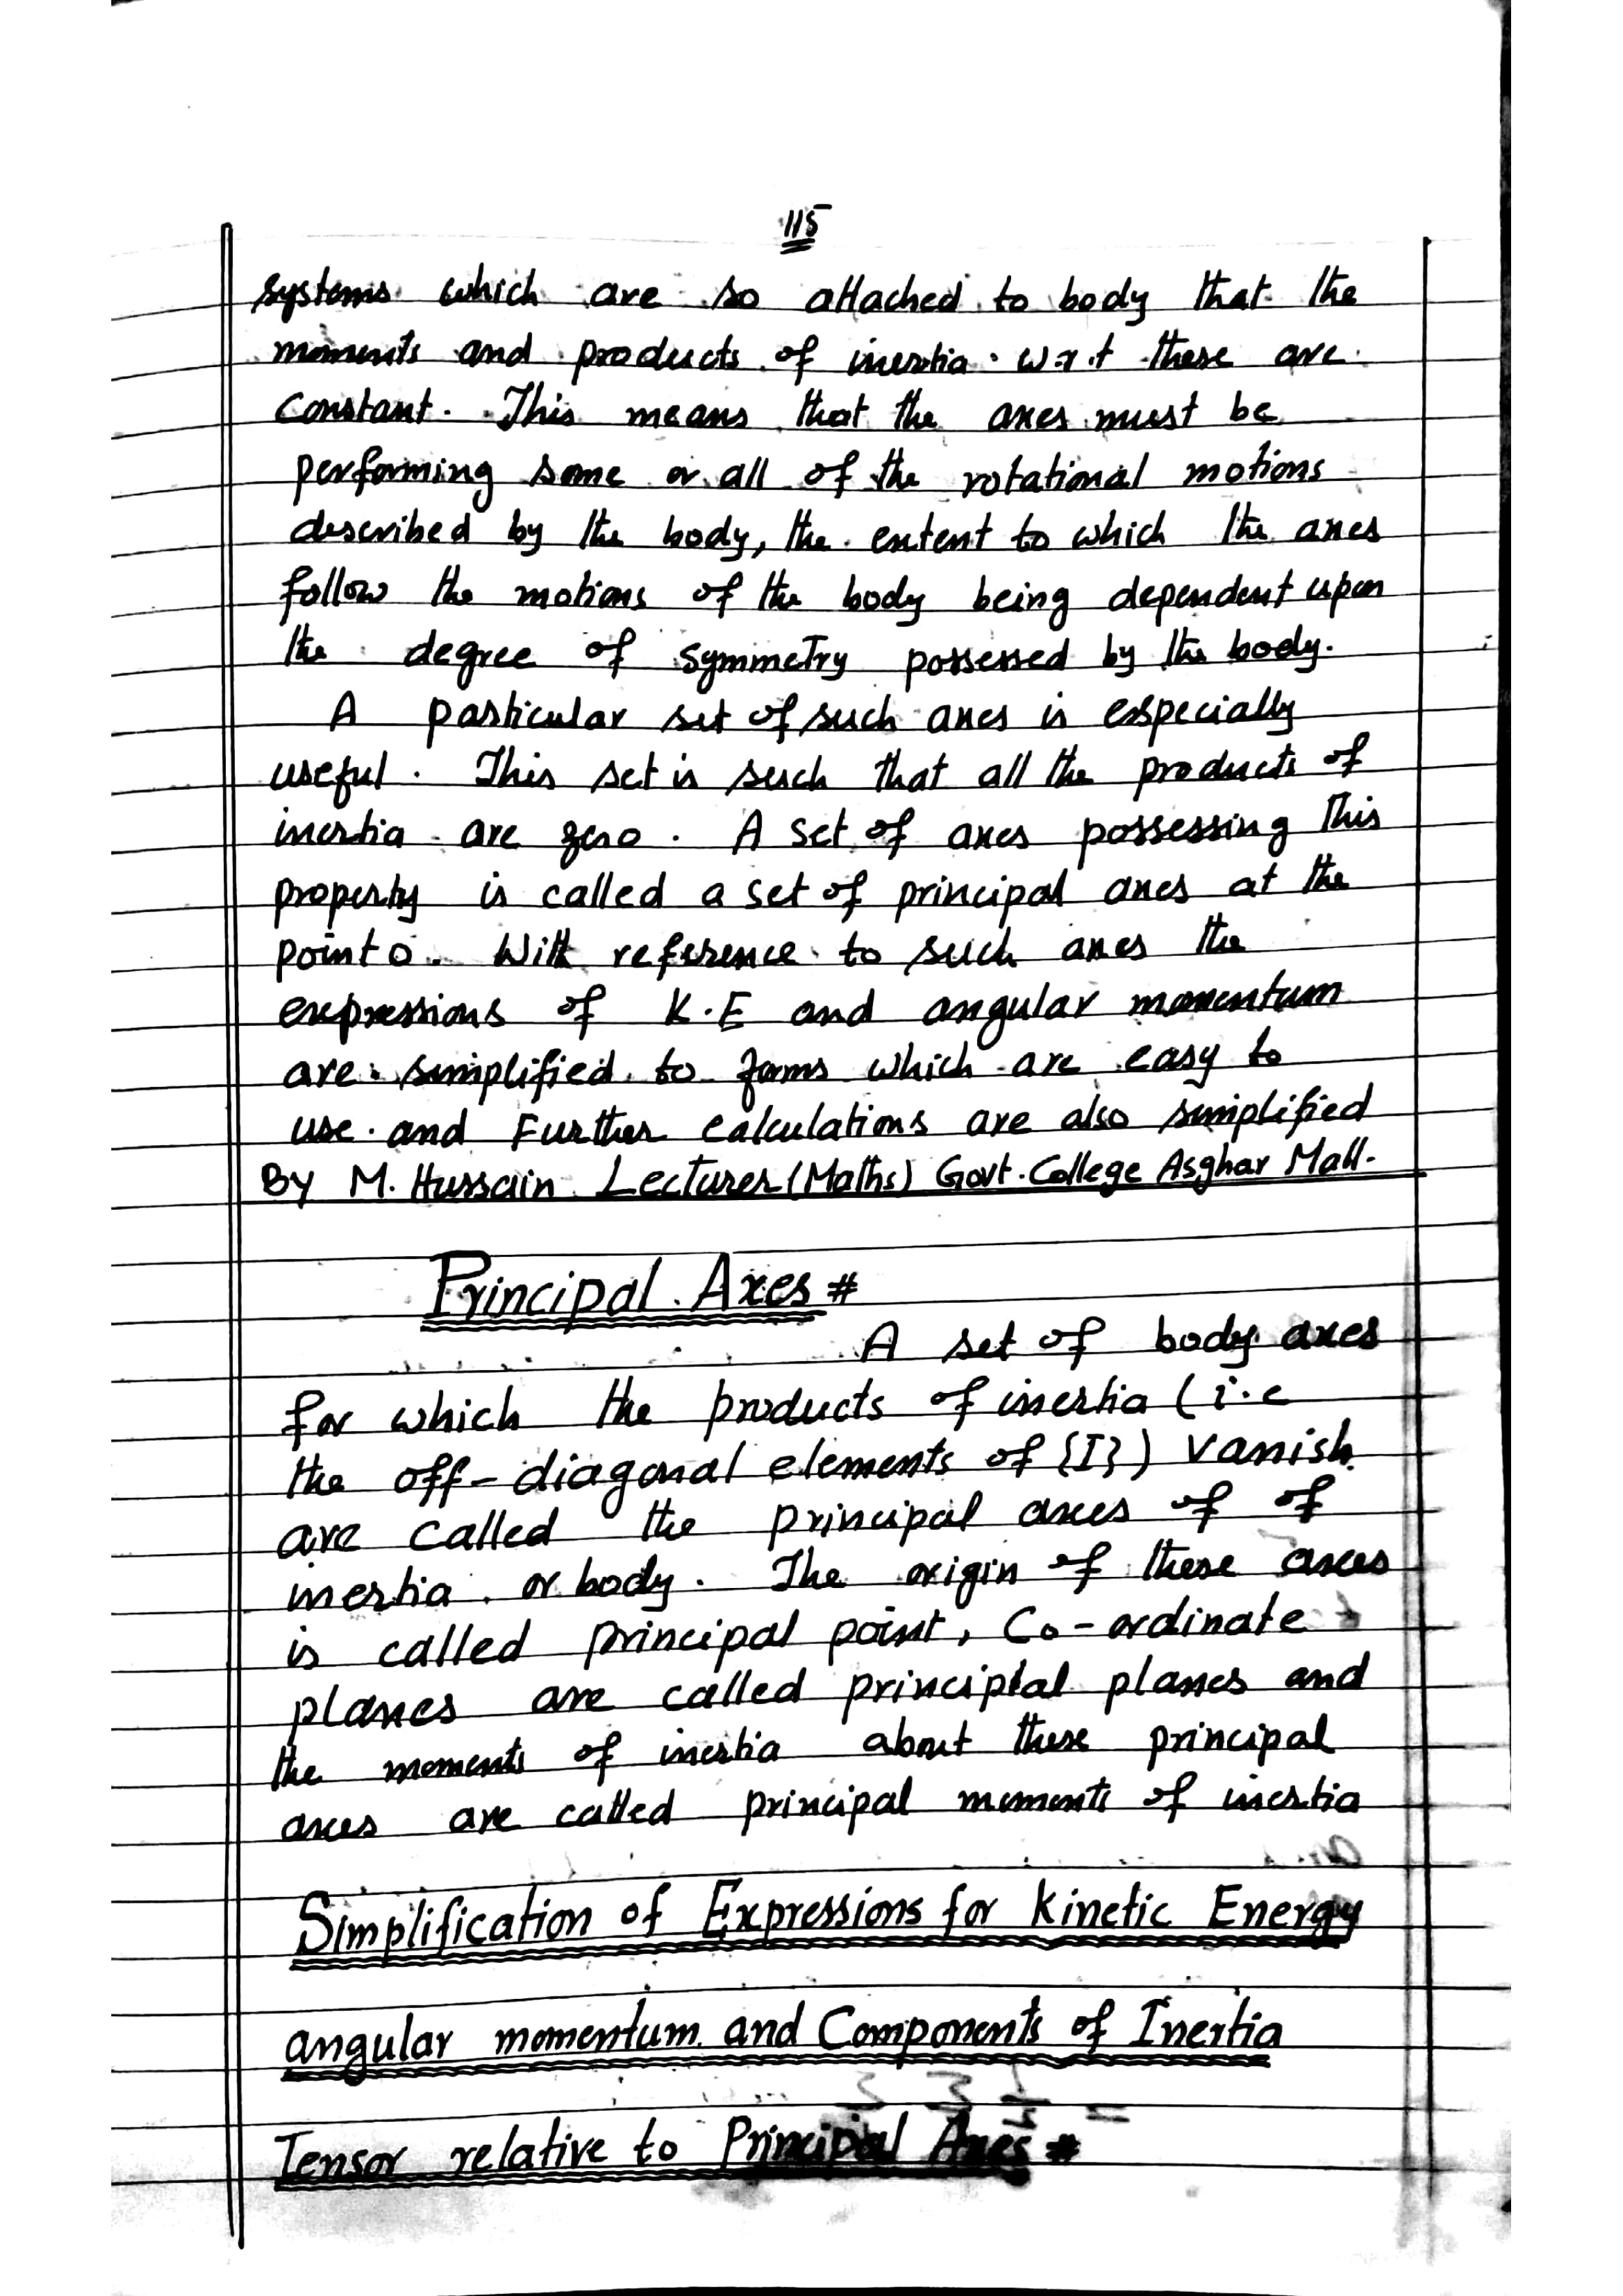 115
systems which are so attached to body that the
moments and products of inertia w.r.t these are
constant. This means that the axes must be
performing some or all of the rotational motions
described by the body, the extent to which the axes
follow the motions of the body being dependent upon
the degree of symmetry possessed by the body.
A particular set of such axes is especially
useful. This set is such that all the products of
inertia are zero. A set of axes possessing this
property is called a set of principal axes at the
point o. With reference to such axes the
expressions of K.E and angular momentum
are simplified to forms which are easy to
use and Further calculations are also simplified
By M. Hussain Lecturer (Maths) Govt. College Asghar Mall.
Principal Axes #
A set of body axes
for which the products of inertia (i.e
the off-diagonal elements of {I}) vanish
are called the principal axes of of
inertia or body. The origin of these axes
is called principal point, Co-ordinate
planes are called principial planes and
the moments of inertia about these principal
axes are called principal moments of inertia
Simplification of Expressions for Kinetic Energy
angular momentum and Components of Inertia
Tensor relative to Principal Axes #